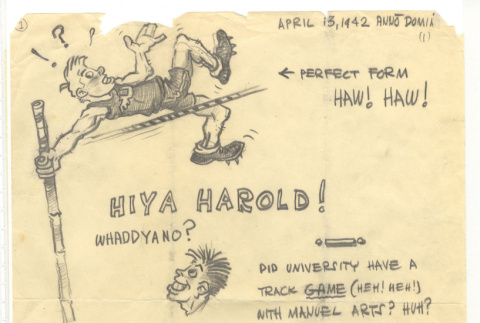 ①
APRIL 13, 1942 ANNŌ DOMIÁ
(1)
! ? !
← PERFECT FORM
HAW! HAW!
HIYA HAROLD!
WHADDYANO?
DID UNIVERSITY HAVE A
TRACK GAME (HEH! HEH!)
WITH MANUEL ARTS? HUH?